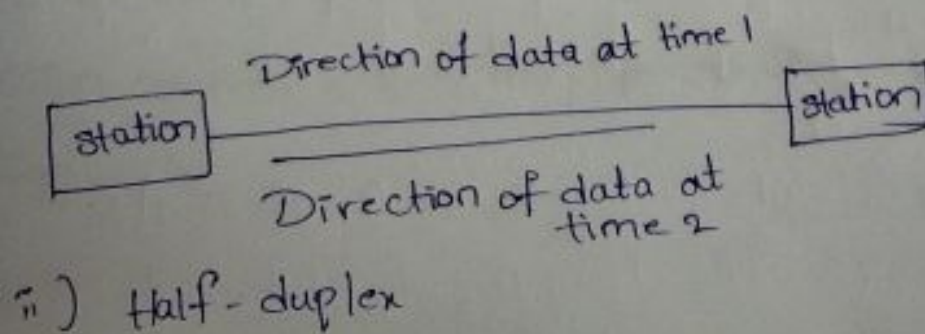 Direction of data at time 1
station
station
Direction of data at
time 2
ii) Half-duplex